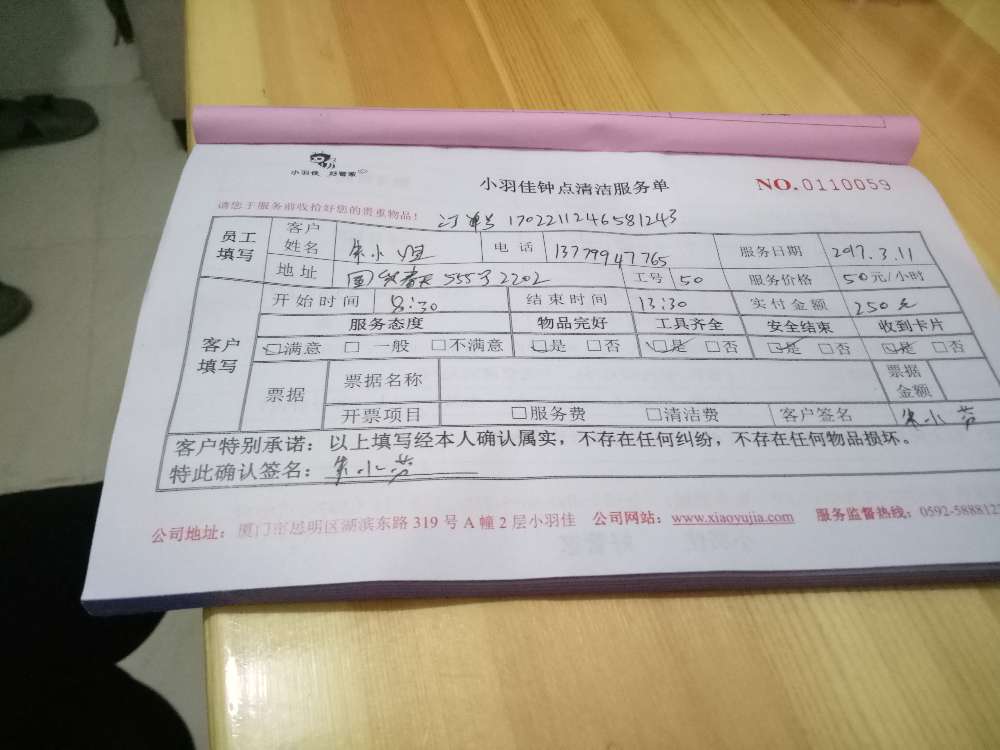 小羽佳 好管家
小羽佳钟点清洁服务单 NO.0110059
请您于服务前收拾好您的贵重物品! 订单号 1702211246581243
员工填写 客户姓名 朱小 电话 13779947765 服务日期 2017.3.11
地址 555 2202 工号 50 服务价格 50元/小时
客户填写 开始时间 8:30 结束时间 13:30 实付金额 250元
服务态度 物品完好 工具齐全 安全结束 收到卡片
☑满意 □一般 □不满意 ☑是 □否 ☑是 □否 ☑是 □否 ☑是 □否
票据 票据名称 票据金额
开票项目 □服务费 □清洁费 客户签名 朱小芳
客户特别承诺：以上填写经本人确认属实，不存在任何纠纷，不存在任何物品损坏。
特此确认签名：朱小芳
公司地址：厦门市思明区湖滨东路 319 号 A 幢 2 层小羽佳 公司网站：www.xiaoyujia.com 服务监督热线：0592-588812